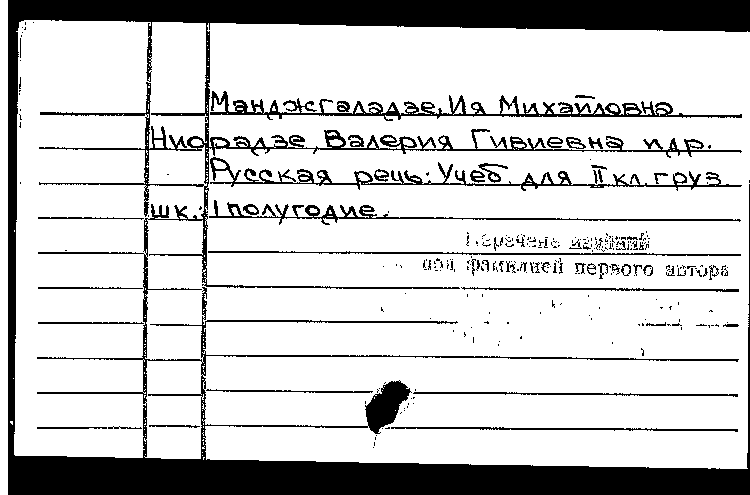 Манджгаладзе, Ия Михайловна.
Ниорадзе, Валерия Гивиевна и др.
Русская речь: Учеб. для II кл. груз.
шк.: 1 полугодие.
Перечень изданий
под фамилией первого автора